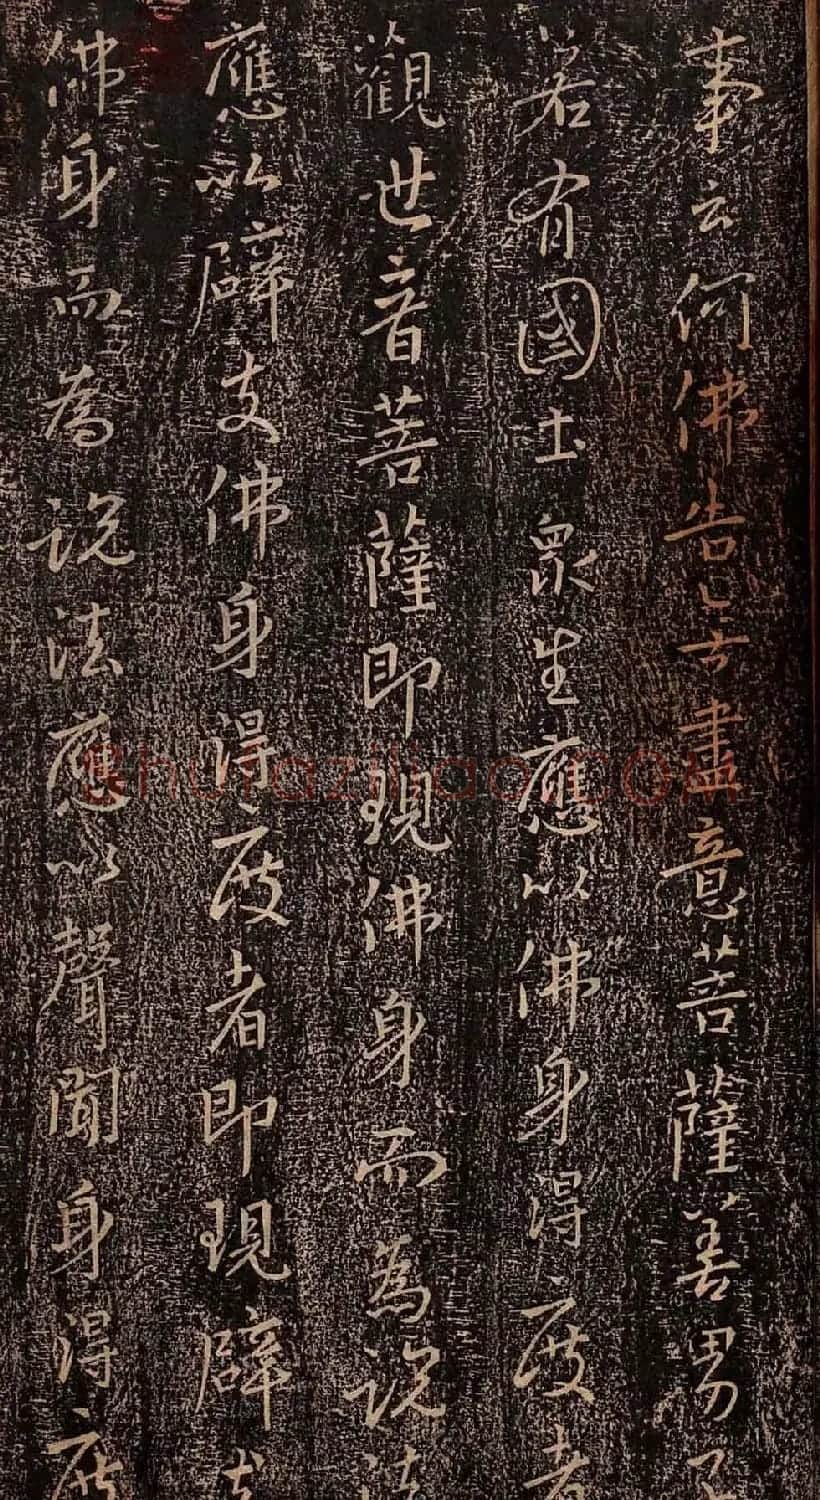 事云何佛告無盡意菩薩善男子
若有國土眾生應以佛身得度者
觀世音菩薩即現佛身而為說法
應以辟支佛身得度者即現辟支
佛身而為說法應以聲聞身得度
Shufaziliao.COM